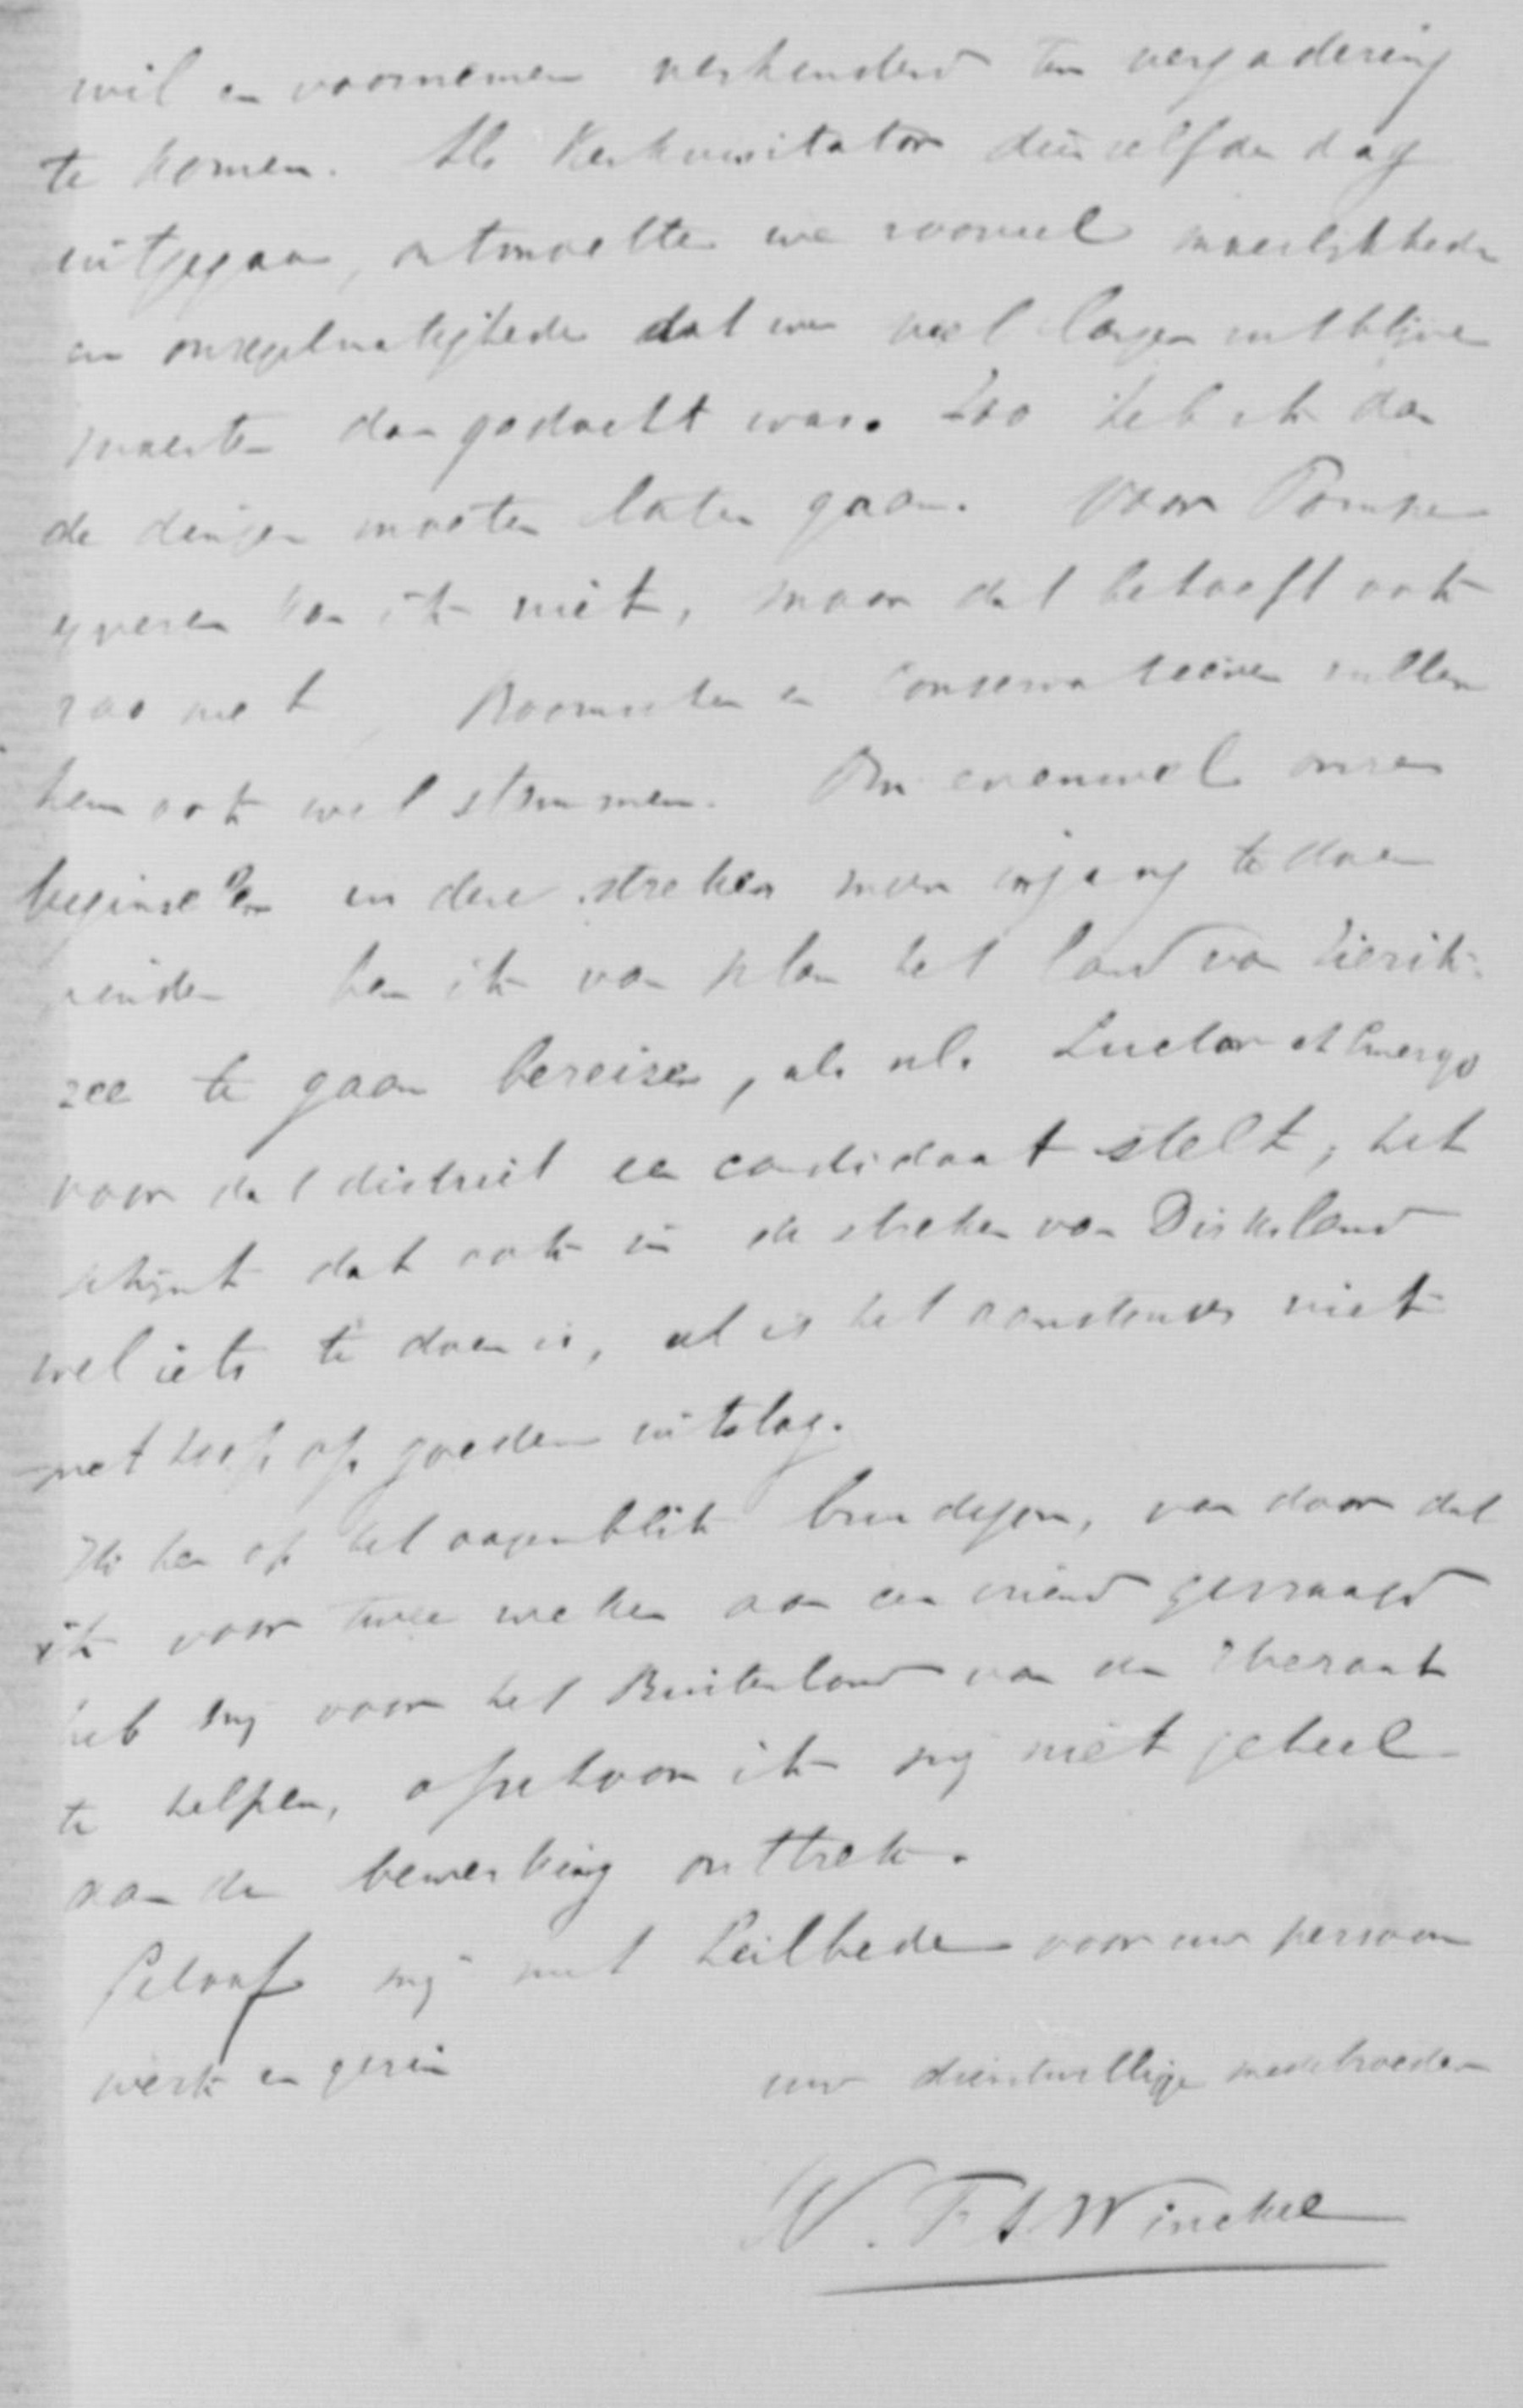 wil en voornemen verhinderd ter vergadering
te komen. Als Kerkvisitator dienzelfden dag
uitgegaan, ontmoette we zooveel moeilijkheden
en onregelmatigheden dat we veel langer uitblijven
moesten dan gedacht was. Zoo heb ik dan
de dingen moeten laten gaan. Voor Pompe
ijveren kan ik niet, maar dat behoeft ook
zoo niet, Roomschen en Conservatieven zullen
hem ook wel stemmen. Om evenwel onze
beginselen in deze streken meer ingang te doen
vinden ben ik van plan het land van Zierik-
zee te gaan bereisen, als nl. Luctor et Emergo
voor dat district een candidaat stelt; het
schijnt dat ook in de streken van Dirksland
wel iets te doen is, al is het aanstonds niet
met hoop op goeden uitslag.
Ik ben op het oogenblik van daar dat
ik voor twee weken aan een vriend gevraagd
heb mij voor het Buitenland van de Heraut
te helpen, ofschoon ik mij niet geheel
aan de bewerking onttrek.
Geloof mij met heilbede voor uw persoon
werk en gezin
uw dienstwillige medebroeder
W. F. A. Winckel